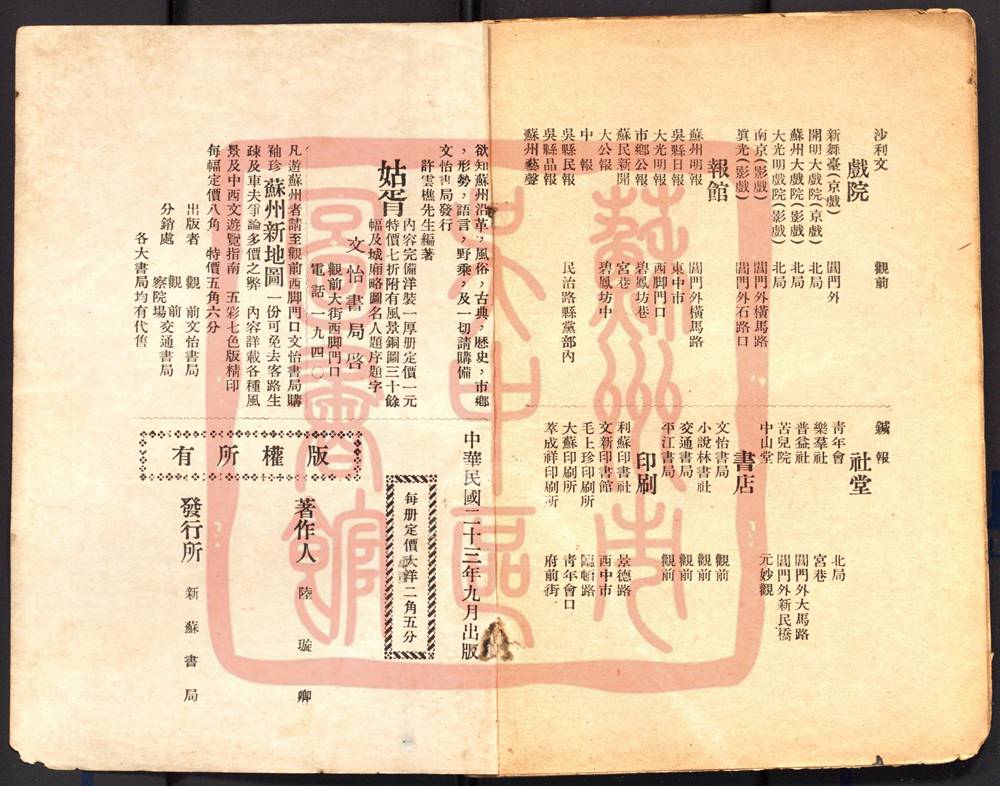 沙利文　觀前
戲院
新舞臺(京戲)　閶門外
開明大戲院(京戲)　北局
蘇州大戲院(影戲)　北局
大光明戲院(影戲)　北局
南京(影戲)　閶門外橫馬路
眞光(影戲)　閶門外石路口
報館
蘇州明報　閶門外橫馬路
吳縣日報　東中市
大光明報　西脚門口
市鄉公報　碧鳳坊巷
蘇民新聞　宮巷
大公報　碧鳳坊中
中報
吳縣民報　民治路縣黨部內
吳縣晶報
蘇州藝聲
鍼報
社堂
青年會　北局
樂羣社　宮巷
普益社　閶門外大馬路
苦兒院　閶門外新民橋
中山堂　元妙觀
書店
文怡書局　觀前
小說林書社　觀前
交通書局　觀前
平江書局　觀前
印刷
利蘇印書社　景德路
文新印書館　西中市
毛上珍印刷所　臨頓路
大蘇印刷所　青年會口
萃成祥印刷所　府前街
欲知蘇州沿革，風俗，古典，歷史，市鄉
，形勢，語言，野乘，及一切請購備
文怡書局發行
許雲樵先生編著
姑胥
內容完備洋裝一厚册定價一元
特價七折附有風景銅圖三十餘
幅及城廂略圖名人題序題字
文怡書局啓
觀前大街西脚門口
電話一九四〇
凡遊蘇州者請至觀前西脚門口文怡書局購
袖珍蘇州新地圖一份可免去客路生
疎及車夫爭論多價之弊　內容詳載各種風
景及中西文遊覽指南　五彩七色版精印
每幅定價八角　特價五角六分
出版者　觀前文怡書局
分銷處　觀前交通書局
察院場
各大書局均有代售
中華民國二十三年九月出版
每册定價大洋二角五分
版權所有
著作人　陸璇卿
發行所　新蘇書局
蘇州市
中區
圖書館